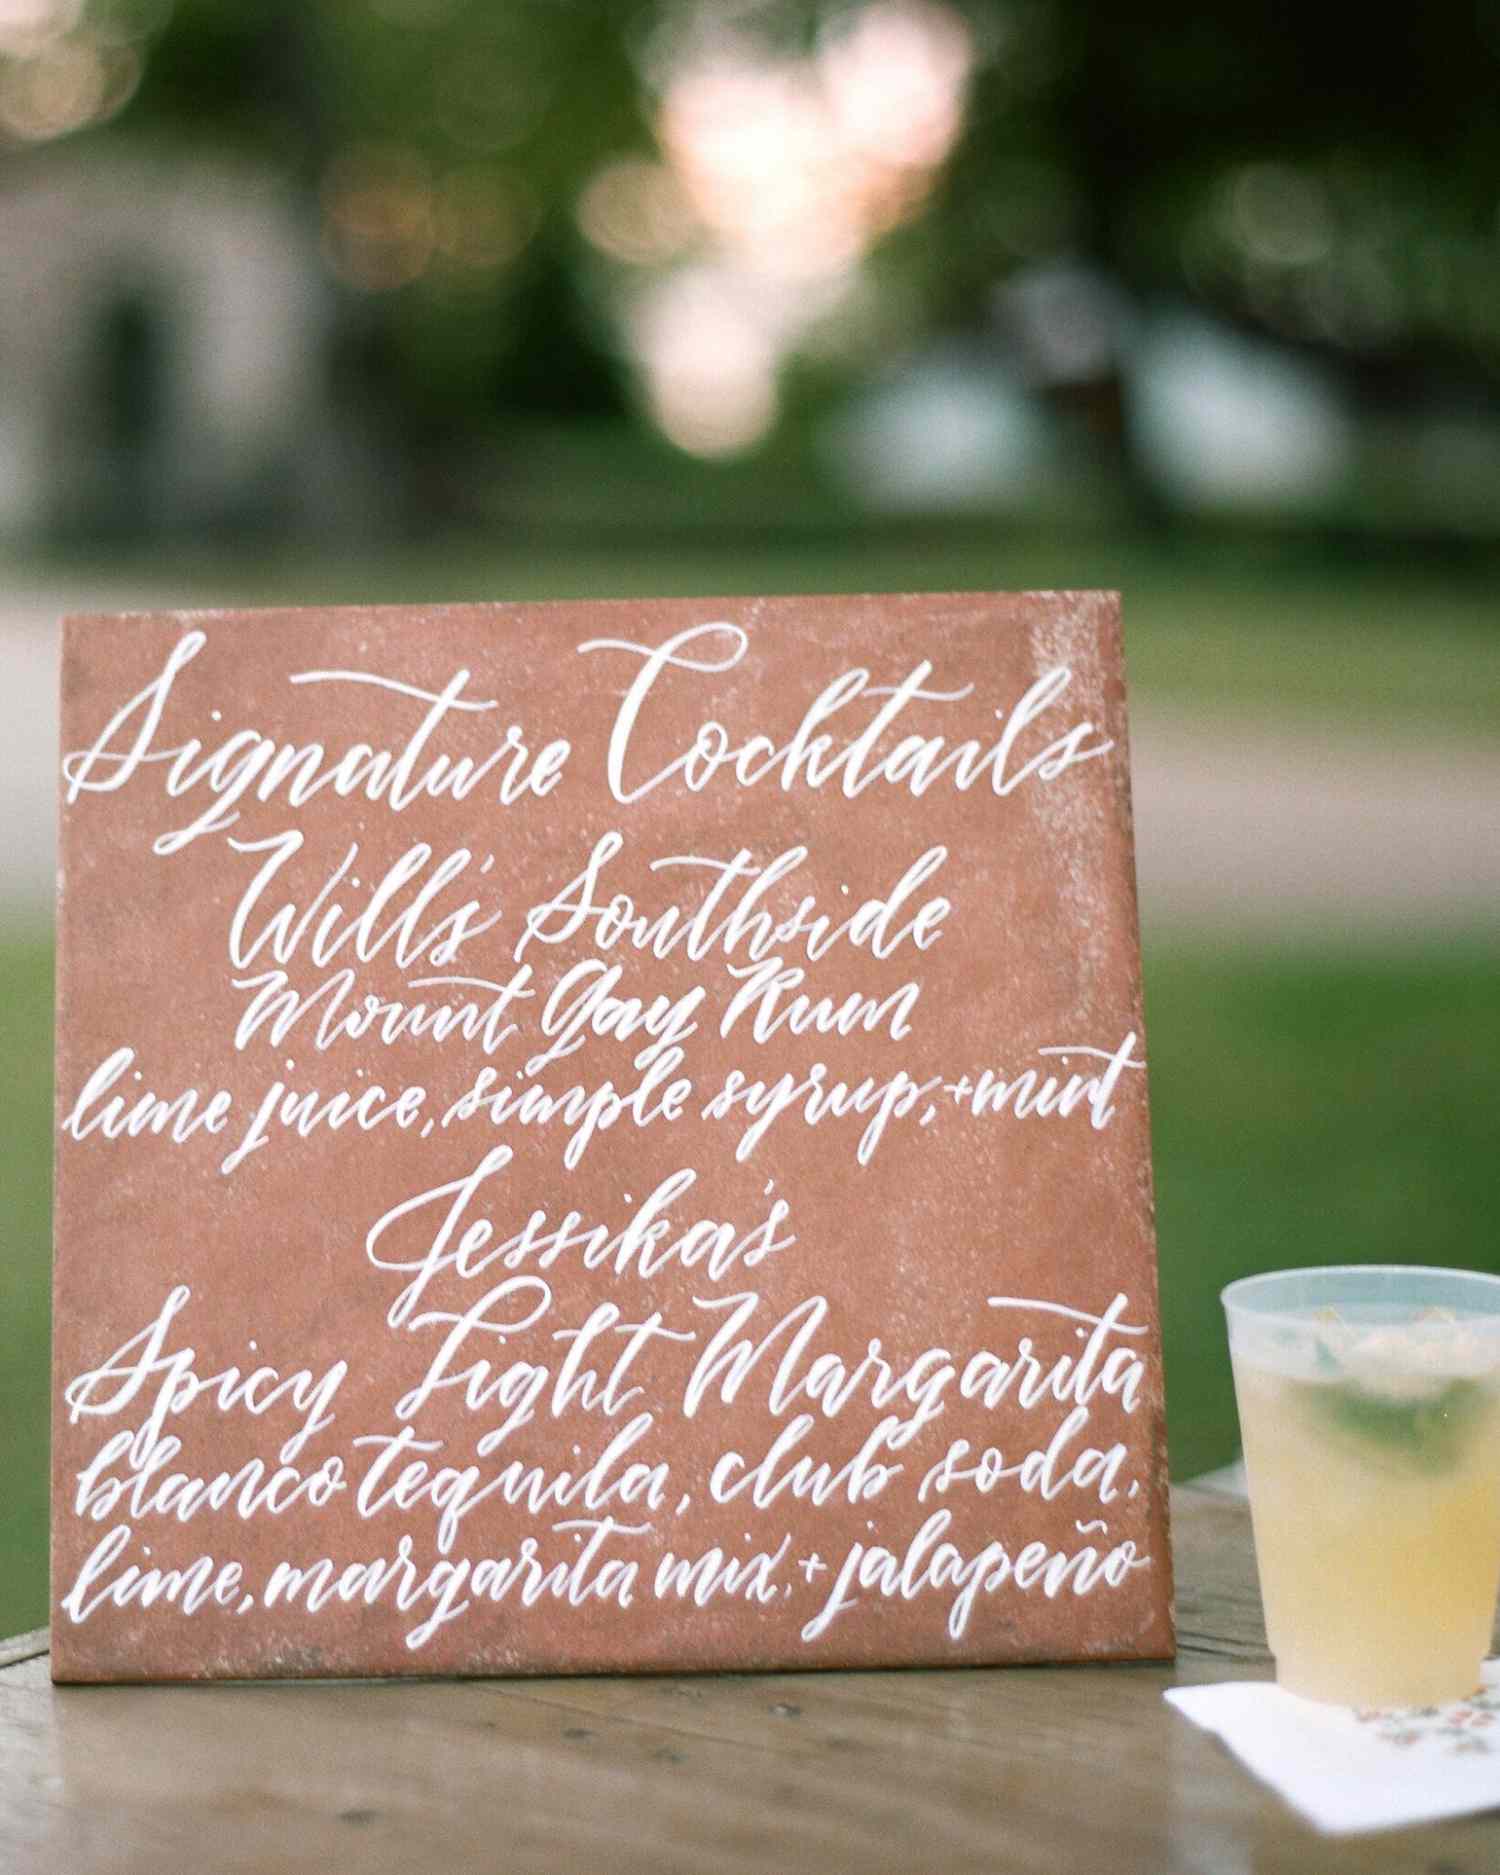 Signature Cocktails
Will's Southside
Mount Gay Rum
lime juice, simple syrup, + mint
Jessika's
Spicy Light Margarita
blanco tequila, club soda,
lime, margarita mix, + jalapeño